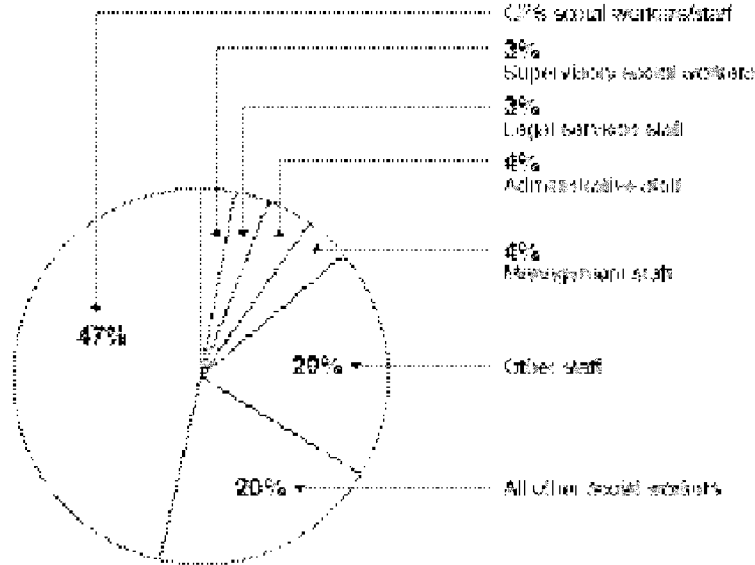 social workers/staff
3%
Supervisory social workers
3%
Legal services staff
4%
Administrative staff
4%
Management staff
47%
20%
Other staff
20%
All other social workers